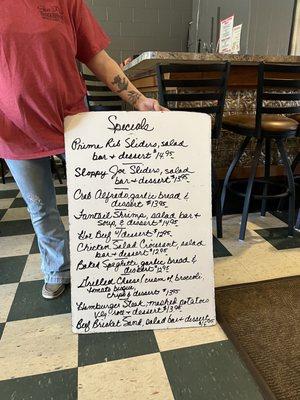 Specials
Prime Rib Sliders, salad
bar + dessert $14.95
Sloppy Joe Sliders, salad
bar + dessert $13.95
Crab Alfredo, garlic bread &
dessert $14.95
Fantail Shrimp, salad bar &
Soup & dessert
Hot Beef w/ dessert
Chicken Salad Croissant, salad
bar & dessert
Baked Spaghetti, garlic bread &
dessert
Grilled Cheese/cream of broccoli
tomato bisque,
chips & dessert
Hamburger Steak, mashed potatoes
veg, roll + dessert $13.95
Beef Brisket Sand, salad bar + dessert